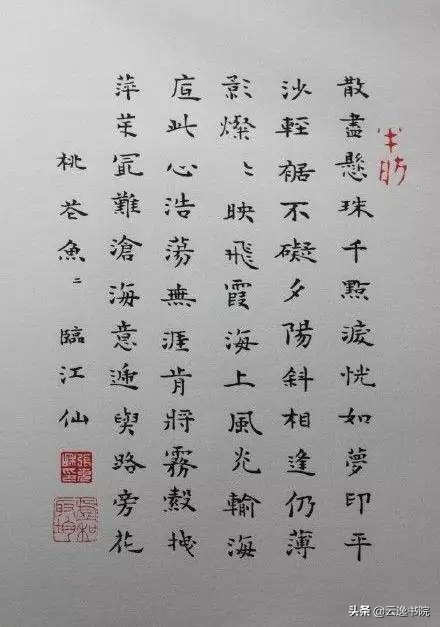 散盡懸珠千點淚恍如夢印平
沙輕裾不礙夕陽斜相逢仍薄
影燦〻映飛霞海上風光輸海
底此心浩蕩無涯肯將霧縠拽
萍芽冣難滄海意遞與路旁花
桃花魚〻 臨江仙
头条 @云逸书院